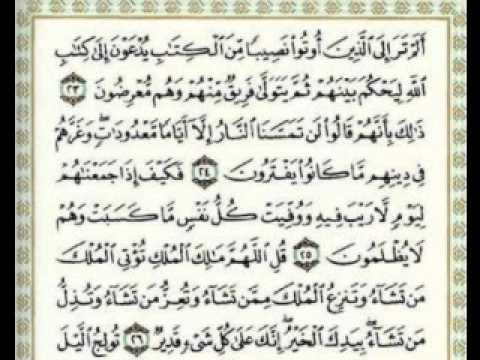 أَلَمْ تَرَ إِلَى ٱلَّذِينَ أُوتُوا۟ نَصِيبًا مِّنَ ٱلْكِتَٰبِ يُدْعَوْنَ إِلَىٰ كِتَٰبِ
ٱللَّهِ لِيَحْكُمَ بَيْنَهُمْ ثُمَّ يَتَوَلَّىٰ فَرِيقٌ مِّنْهُمْ وَهُم مُّعْرِضُونَ ٢٣
ذَٰلِكَ بِأَنَّهُمْ قَالُوا۟ لَن تَمَسَّنَا ٱلنَّارُ إِلَّآ أَيَّامًا مَّعْدُودَٰتٍ ۖ وَغَرَّهُمْ
فِى دِينِهِم مَّا كَانُوا۟ يَفْتَرُونَ ٢٤ فَكَيْفَ إِذَا جَمَعْنَٰهُمْ
لِيَوْمٍ لَّا رَيْبَ فِيهِ وَوُفِّيَتْ كُلُّ نَفْسٍ مَّا كَسَبَتْ وَهُمْ
لَا يُظْلَمُونَ ٢٥ قُلِ ٱللَّهُمَّ مَٰلِكَ ٱلْمُلْكِ تُؤْتِى ٱلْمُلْكَ
مَن تَشَآءُ وَتَنزِعُ ٱلْمُلْكَ مِمَّن تَشَآءُ وَتُعِزُّ مَن تَشَآءُ وَتُذِلُّ
مَن تَشَآءُ ۖ بِيَدِكَ ٱلْخَيْرُ ۖ إِنَّكَ عَلَىٰ كُلِّ شَىْءٍ قَدِيرٌ ٢٦ تُولِجُ ٱلَّيْلَ